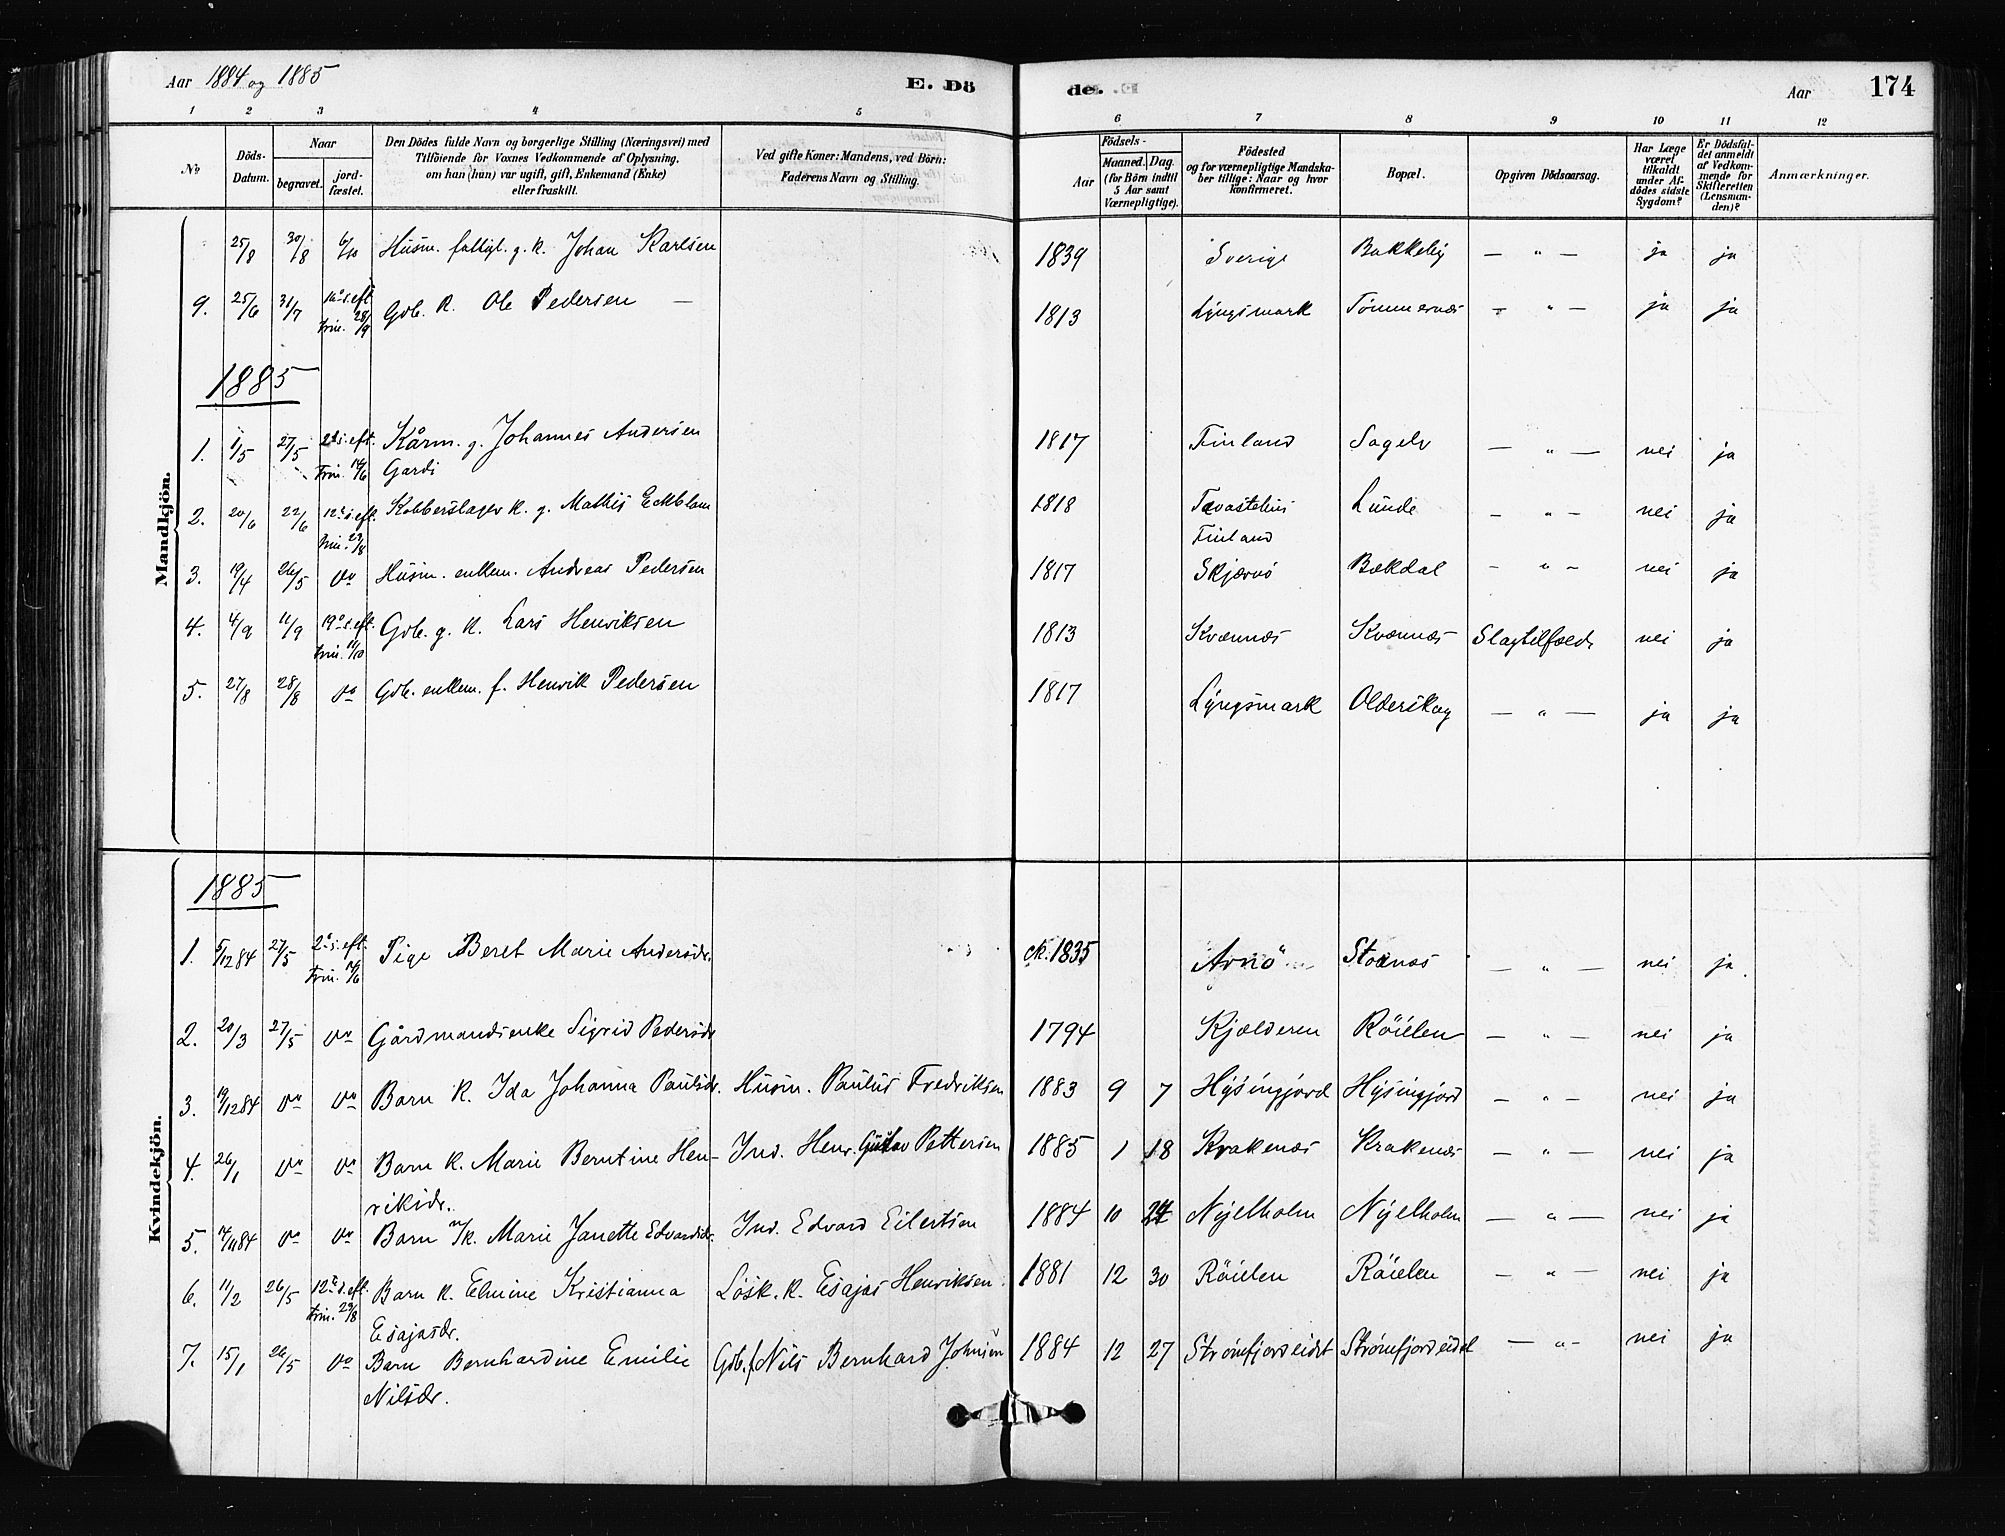 Aar 1884 og 1885
E. Dö
de.
Aar
174
1 2 3 4 5 6 7 8 9 10 11 12
No
Döds-
Datum.
Naar
begravet.
jord-
fæstet.
Den Dödes fulde Navn og borgerlige Stilling (Næringsvei) med
Tilföiende for Voxnes Vedkommende af Oplysning,
om han (hun) var ugift, gift, Enkemand (Enke)
eller fraskilt.
Ved gifte Koner: Mandens, ved Börn:
Faderens Navn og Stilling.
Födsels-
Aar
Maaned. Dag.
(for Börn indtil
5 Aar samt
Værnepligtige).
Födested
og for værnepligtige Mandska-
ber tillige: Naar og hvor
konfirmeret.
Bopæl.
Opgiven Dödsaarsag.
Har Læge
været
tilkaldt
under Af-
dödes sidste
Sygdom?
Er Dödsfal-
det anmeldt
af Vedkom-
mende for
Skifteretten
(Lensman-
den)?
Anmærkninger.
Mandkjön.
25/8 30/8 6/10 Husm. fattigl. g. k. Johan Karlsen 1839 Sverige Bakkeby — " — ja ja
9. 25/6 31/7 16de s. eft. Gdb. k. Ole Pedersen — 1813 Lyngsmark Tømmernæs — " — ja ja
Trin. 28/9
1885
1. 1/5 27/5 2d s. eft. Kårm. g. Johannes Andersen 1817 Finland Sagelv — " — nei ja
Trin. 14/6 Gardi
2. 20/6 22/6 12te s. eft. Kobberslager k. g. Mathis Eckblom 1818 Tavastehus Lunde — " — nei ja
Trin. 23/8 Finland
3. 19/4 26/5 do Husm. enkem. Andreas Pedersen 1817 Skjærvö Bækdal — " — nei ja
4. 4/9 11/9 19de s. eft. Gdb. g. k. Lars Henriksen 1813 Kvænnæs Kvænnæs Slagtilfælde nei ja
Trin. 11/10
5. 27/8 28/8 do Gdb. enkem. f. Henrik Pedersen 1817 Lyngsmark Olderskog — " — ja ja
Kvindekjön.
1885
1. 5/12 84 27/5 2d s. eft. Pige Beret Marie Andersdr. ck. 1835 Arnö Stornæs — " — nei ja
Trin. 14/6
2. 20/3 27/5 do Gårdmandsenke Sigrid Pedersdr 1794 Kjælderen Röielen — " — nei ja
3. 19/12 84 do do Barn k. Ida Johanna Paulsdr. Husm. Paulus Fredriksen 1883 9 7 Hysingjord Hysingjord — " — nei ja
4. 26/1 do do Barn k. Marie Berntine Hen- Ind. Henr. Gustav Pettersen 1885 1 18 Krakenæs Krakenæs — " — nei ja
riksdr.
5. 14/11 84 do do Barn n/k. Marie Janette Edvardsdr. Ind. Edvard Eilertsen 1884 10 24 Nyelholm Nyelholm — " — nei ja
6. 11/2 26/5 12te s. eft. Barn k. Elmine Kristianna Lösk. k. Esajas Henriksen 1881 12 30 Röielen Röielen — " — nei ja
Trin. 23/8 Esajasdr.
7. 15/1 26/5 do Barn Bernhardine Emilie Gdb. f. Nils Bernhard Johnsen 1884 12 27 Strømfjordeidet Strømfjordeidet — " — nei ja
Nilsdr.